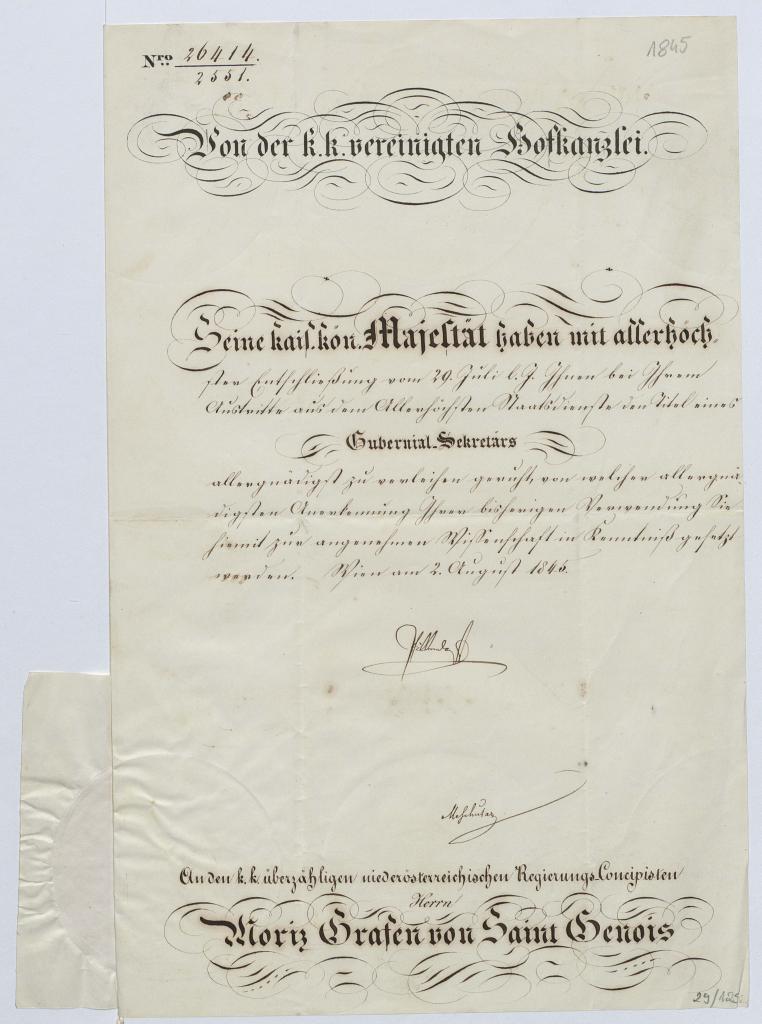 Nro 26414.
2551.
1845
Von der k. k. vereinigten Hofkanzlei.
Seine kais. kön. Majestät haben mit allerhöch-
ster Entschließung vom 29. Juli l. J. Ihnen bei Ihrem
Austritte aus dem Allerhöchsten Staatsdienste den Titel eines
Gubernial-Sekretärs
allergnädigst zu verleihen geruht, von welcher allergnä-
digsten Anerkennung Ihrer bisherigen Verwendung Sie
hiemit zur angenehmen Wissenschaft in Kenntniß gesetzt
werden. Wien am 2. August 1845.
An den k. k. überzähligen niederösterreichischen Regierungs-Concipisten
Herrn
Moriz Grafen von Saint Genois